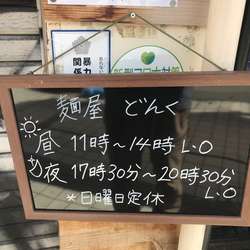 麺屋 どんく
昼 11時~14時 L.O
夜 17時30分~20時30分
L.O
*日曜日定休